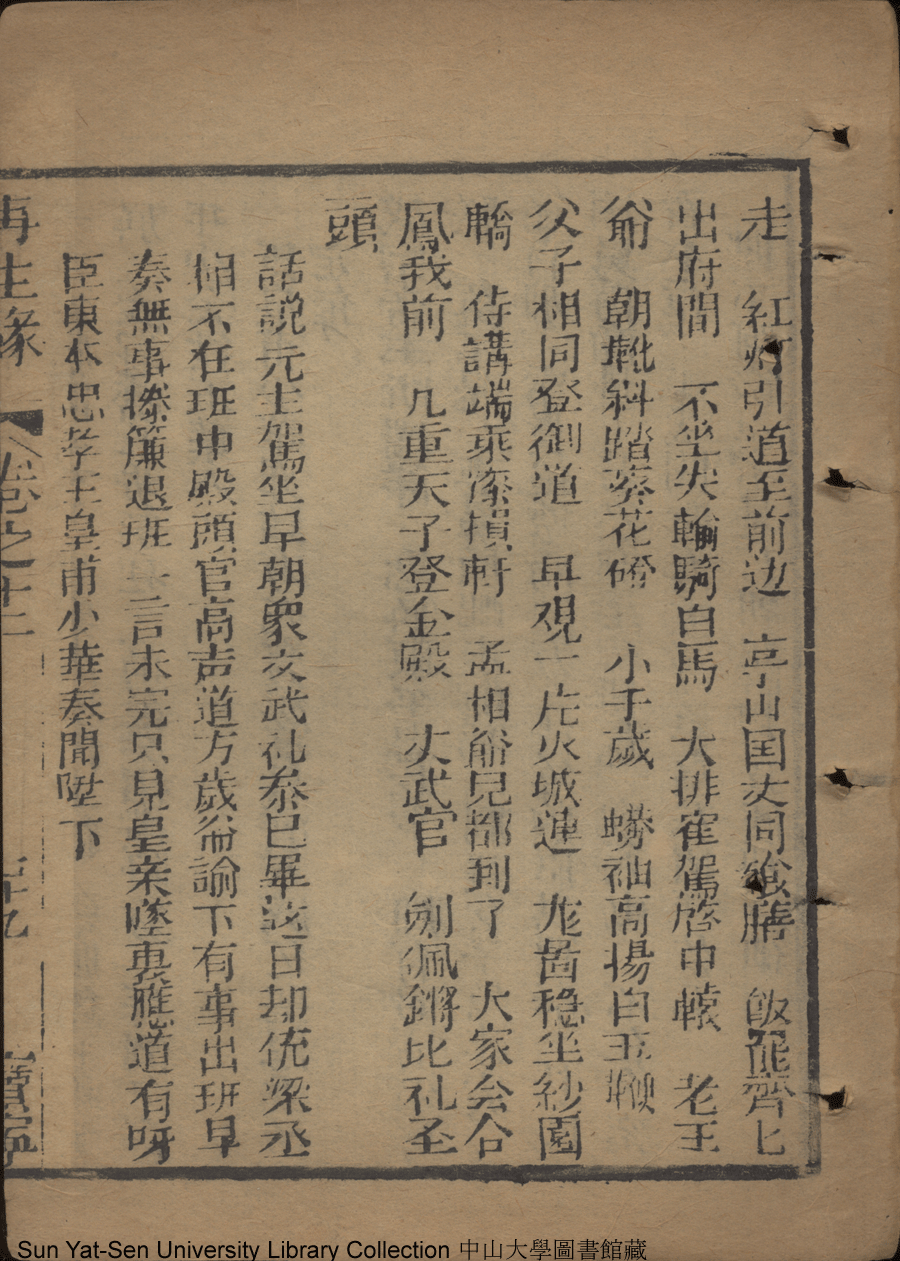 走　紅灯引道至前边　亭山国丈同飱膳　飯罷齊匕
出府間　不坐尖輪騎白馬　大排隺駕啓中轅　老王
爺　朝靴斜踏葵花磴　小千歲　蟒袖高揚白玉鞭
父子相同登御道　早观一片火城連　尨啚稳坐紗園
轎　侍講端乘　損軒　孟相爺兒都到了　大家会合
鳳我前　几重天子登金殿　丈武官　劍佩鏘　比礼圣
頭
話説元主駕坐早朝衆文武礼叅已畢这日却侊梁丞
相不在班中殿頭官高声道万歲爺諭下有事出班早
奏無事捲簾退班一言未完只見皇亲隊裏應道有呀
臣東本忠孝王皇甫少華奏聞陞下
再生缘　卷之十二　寳寧
Sun Yat-Sen University Library Collection 中山大學圖書館藏